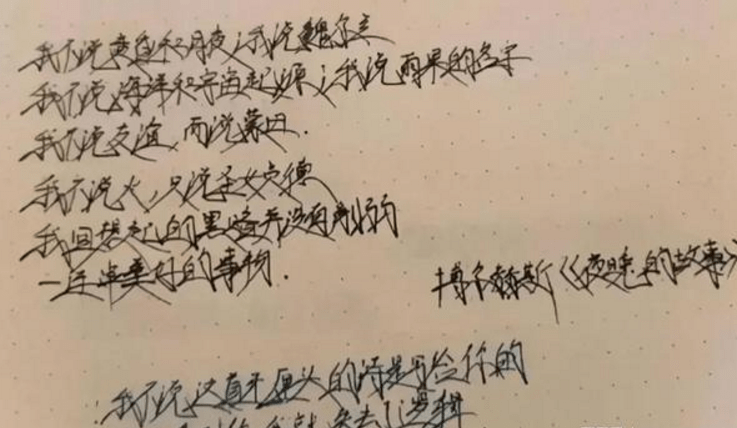 我不说黄昏和月夜；我说魏尔兰
我不说海洋和宇宙起源；我说雨果的名字
我不说友谊，而说蒙田.
我不说火，只说圣女贞德
我回想起的黑暗并没有削弱
一连串美好的事物.
博尔赫斯《夜晚的故事》
我不说这首没头的诗是写给你的
我就失去了逻辑